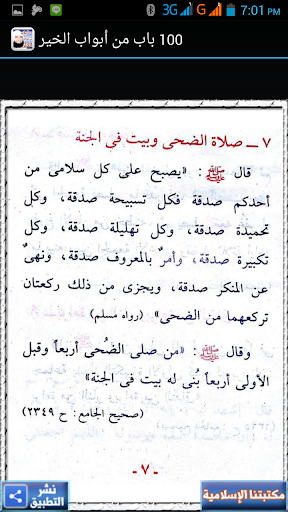 3G G 7:01 PM
100 باب من أبواب الخير
٧ ــ صلاة الضحى وبيت فى الجنة
قال ﷺ : «يصبح على كل سلامى من
أحدكم صدقة فكل تسبيحة صدقة، وكل
تحميدة صدقة، وكل تهليلة صدقة، وكل
تكبيرة صدقة، وأمرٌ بالمعروف صدقة، ونهىٌ
عن المنكر صدقة، ويجزى من ذلك ركعتان
تركعهما من الضحى» (رواه مسلم)
وقال ﷺ : «من صلى الضُحى أربعاً وقبل
الأولى أربعاً بُنى له بيت فى الجنة»
(صحيح الجامع: ح ٢٣٤٩)
- ٧ -
نشر
التطبيق
مكتبتنا الإسلامية